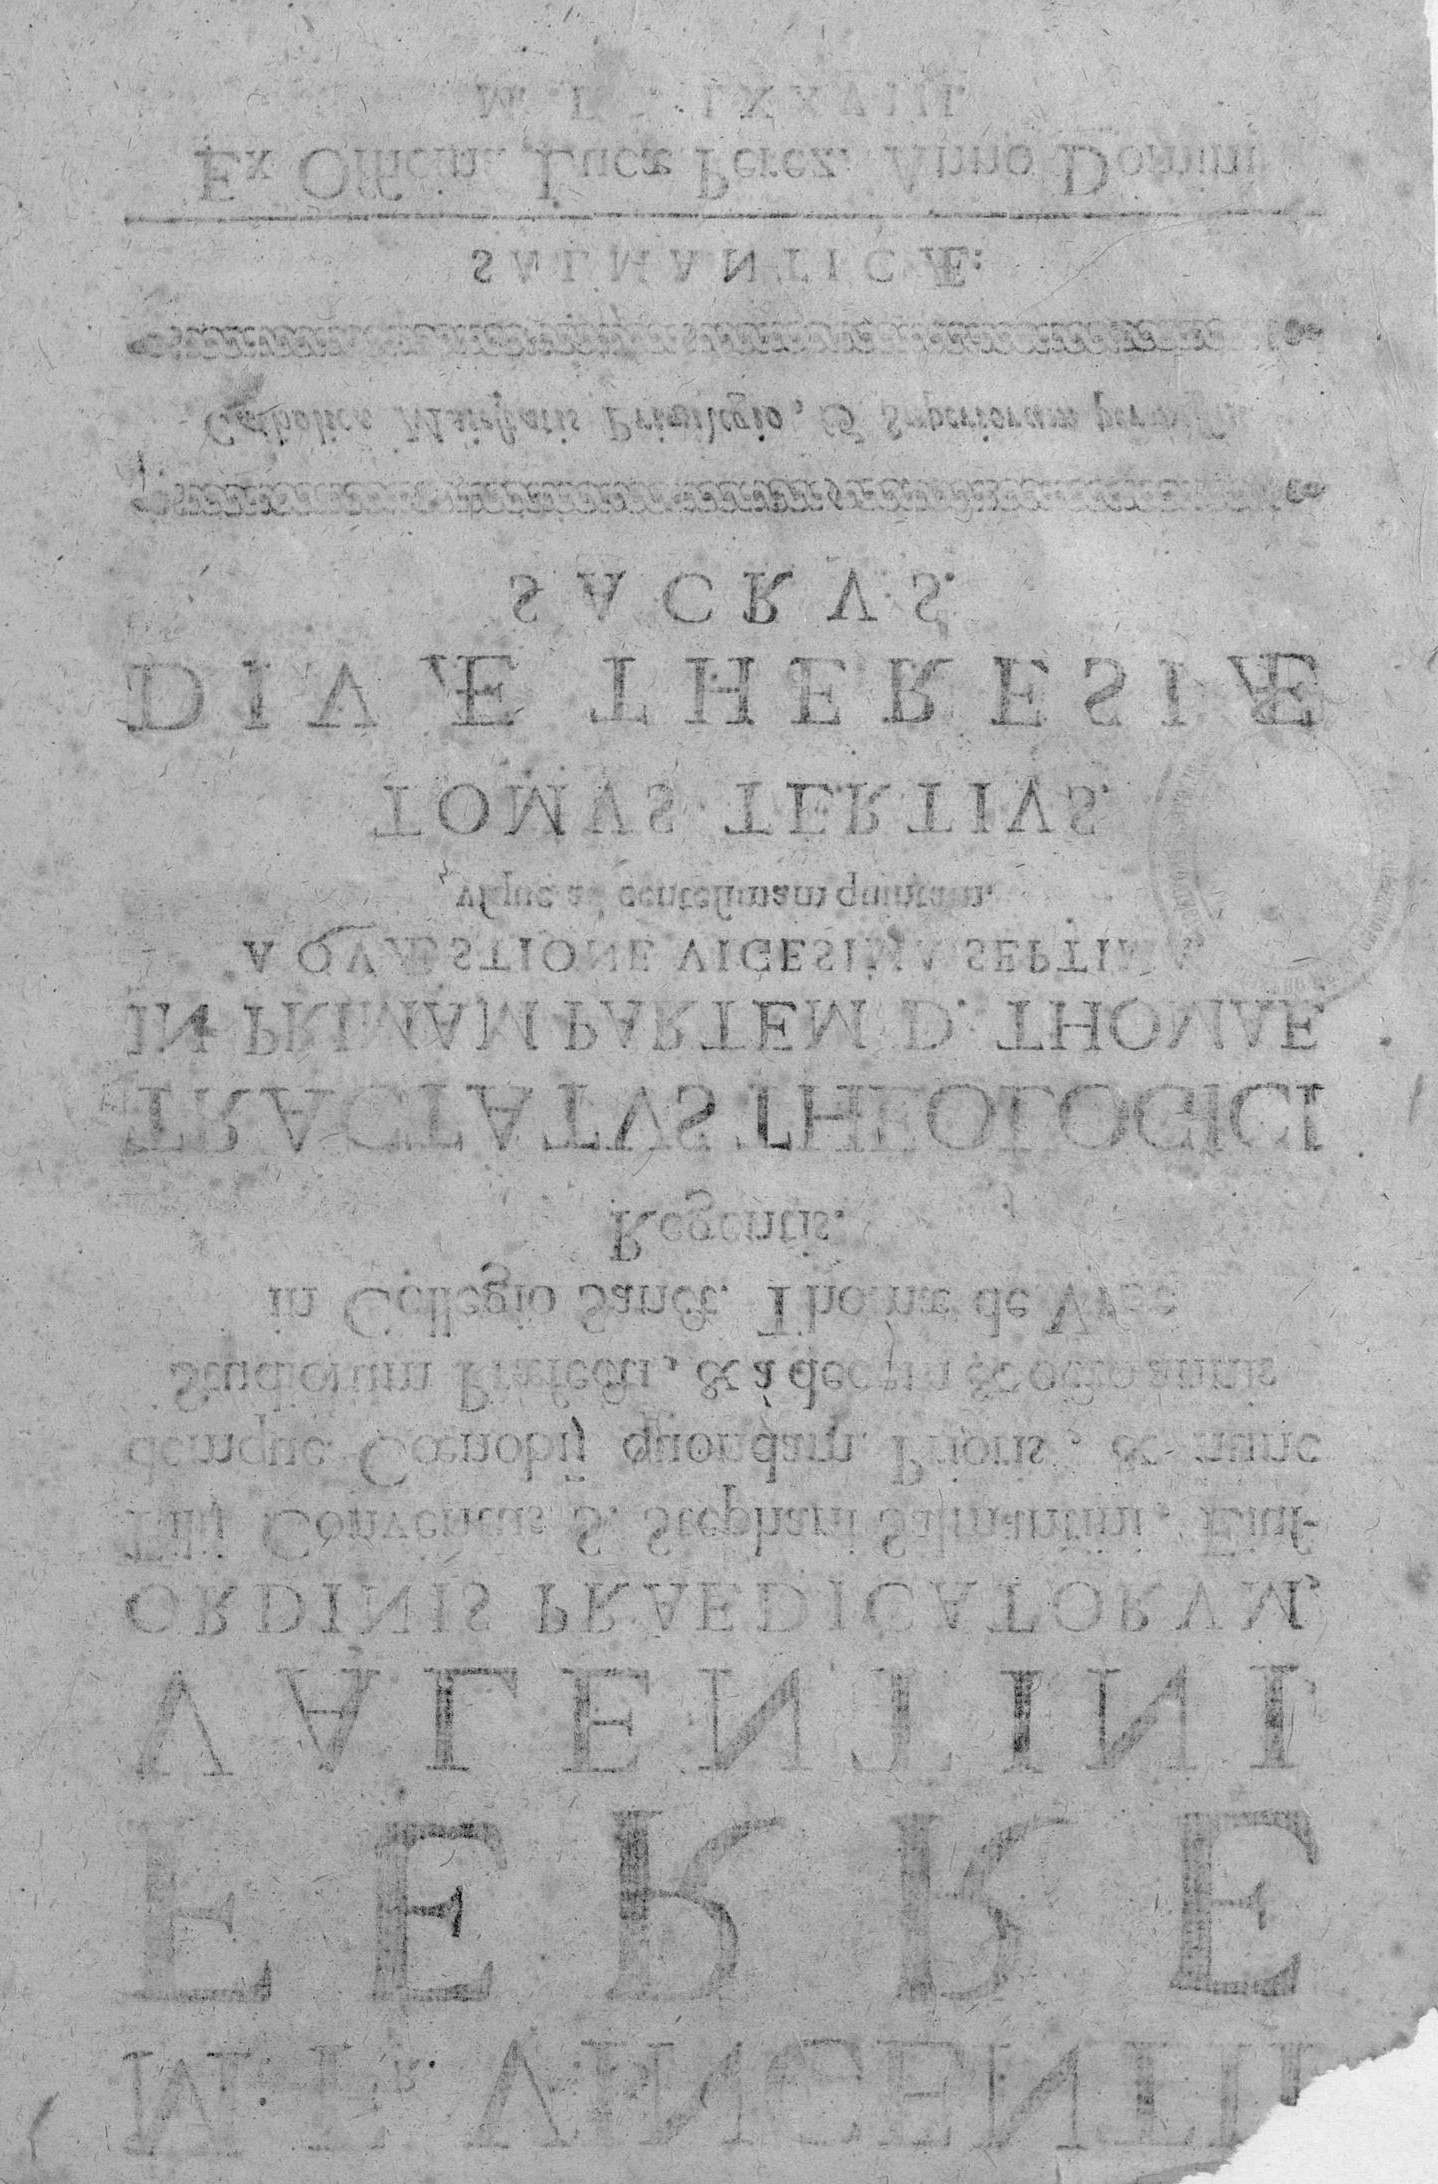 M. Fr. VINCENTII
FERRE
VALENTINI
ORDINIS PRAEDICATORVM,
Filij Conventus S. Stephani Salmantini, Eiuſ-
demque Cœnobij quondam Prioris, & nunc
Studiorum Præfecti, & à decem & octo annis
in Collegio Sanct. Thomæ de Vrbe
Regentis.
TRACTATVS THEOLOGICI
IN PRIMAM PARTEM D. THOMAE
A QVÆSTIONE VIGESIMA SEPTIMA,
vſque ad centeſimam quintam.
TOMVS TERTIVS.
DIVÆ THERESIÆ
SACRVS.
Catholicæ Maieſtatis Privilegio, & Superiorum permiſſu.
SALMANTICÆ:
Ex Officina Lucæ Perez. Anno Domini
M. LXXVIII.